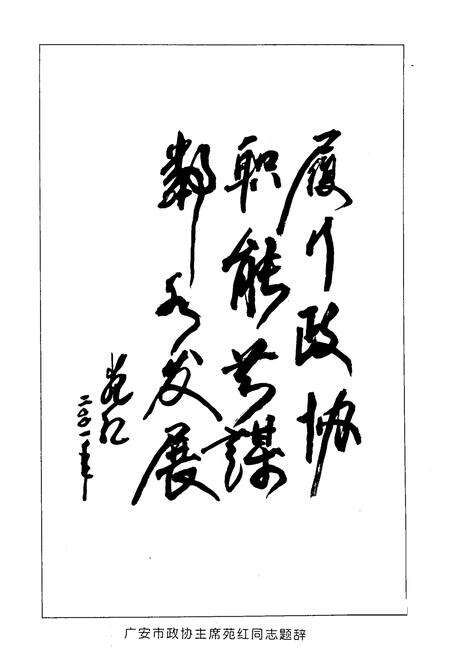 履行政协
职能共谋
鄰水发展
苑红
二〇〇一年
广安市政协主席苑红同志题辞